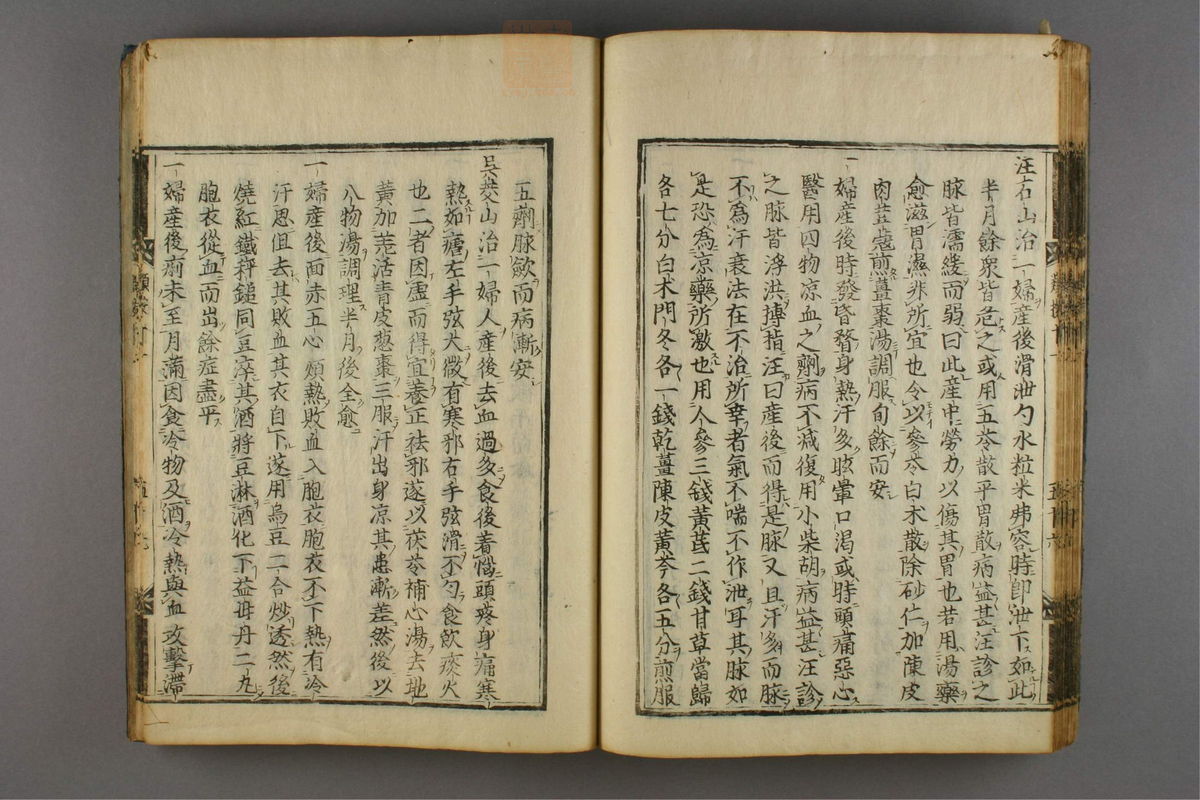 汪石山治一婦産後滑泄勺水粒米弗容時即泄下如此
半月餘衆皆危之或用五苓散平胃散病益甚汪診之
脉皆濡緩而弱曰此産中勞力以傷其胃也若用湯藥
愈滋胃濕非所宜也令以參苓白朮散除砂仁加陳皮
肉荳蔻煎薑棗湯調服旬餘而安
一婦産後時發昏瞀身熱汗多眩暈口渴或時頭痛惡心
醫用四物凉血之劑病不减復用小柴胡病益甚汪診
之脉皆浮洪搏指汪曰産後而得是脉又且汗多而脉
不爲汗衰法在不治所幸者氣不喘不作泄耳其脉如
是恐爲凉藥所激也用人參三錢黄芪二錢甘草當歸
各七分白朮門冬各一錢乾薑陳皮黄芩各五分煎服
五劑脉歛而病漸安
吳茭山治一婦人産後去血過多食後着惱頭疼身痛寒
熱如瘧左手弦大微有寒邪右手弦滑不勻食飲痰火
也二者因虚而得宜養正祛邪遂以茯苓補心湯去地
黄加羗活青皮葱棗三服汗出身凉其患漸差然後以
八物湯調理半月後全愈
一婦産後面赤五心煩熱敗血入胞衣胞衣不下熱有冷
汗思但去其敗血其衣自下遂用烏豆二合炒透然後
燒紅鐵秤鎚同豆淬其酒將豆淋酒化下益母丹二丸
胞衣從血而出餘症盡平
一婦産後痢未至月滿因食冷物及酒冷熱與血攻擊滯